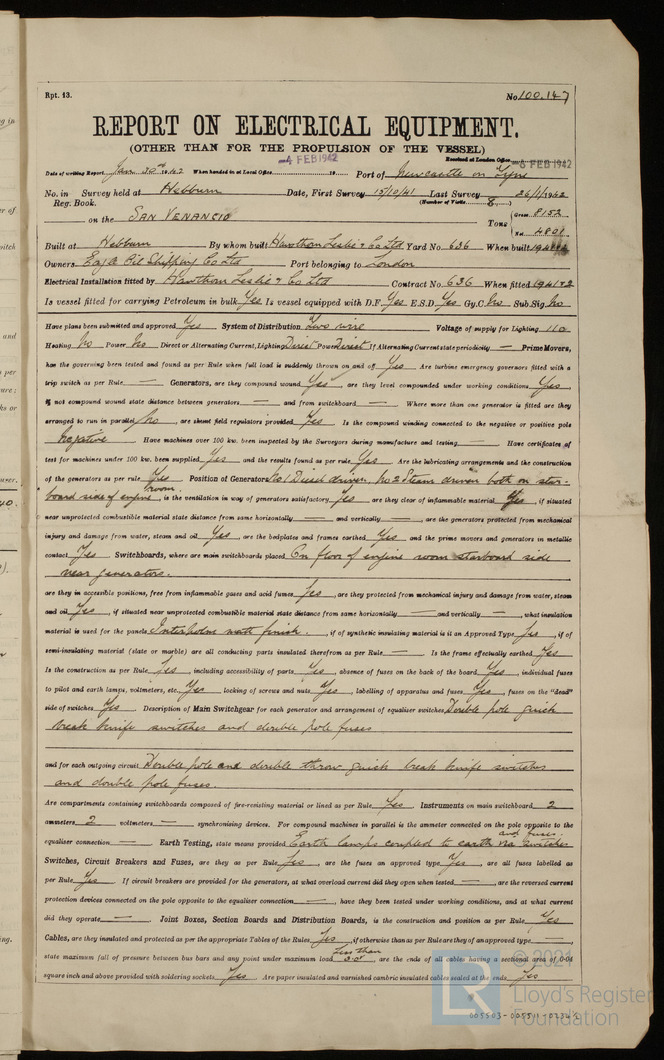 Rpt. 13. No. 100.147
REPORT ON ELECTRICAL EQUIPMENT.
(OTHER THAN FOR THE PROPULSION OF THE VESSEL)
-4 FEB 1942 Received at London Office -6 FEB 1942
Date of writing Report Jan 30th 1942 When handed in at Local Office 19 Port of Newcastle on Tyne
No. in Survey held at Hebburn Date, First Survey 15/10/41 Last Survey 26/1/1942
Reg. Book. (Number of Visits 8)
on the SAN VENANCIO Tons { Gross 8152
Net 4801
Built at Hebburn By whom built Hawthorn Leslie & Co Ltd Yard No. 636 When built 1942
Owners Eagle Oil Shipping Co Ltd Port belonging to London
Electrical Installation fitted by Hawthorn Leslie & Co Ltd Contract No. 636 When fitted 1942
Is vessel fitted for carrying Petroleum in bulk Yes Is vessel equipped with D.F. Yes E.S.D. Yes Gy.C. No Sub.Sig. No
Have plans been submitted and approved Yes System of Distribution Two wire Voltage of supply for Lighting 110
Heating No Power No Direct or Alternating Current, Lighting Direct Power Direct If Alternating Current state periodicity — Prime Movers,
has the governing been tested and found as per Rule when full load is suddenly thrown on and off Yes Are turbine emergency governors fitted with a
trip switch as per Rule — Generators, are they compound wound Yes, are they level compounded under working conditions Yes,
if not compound wound state distance between generators — and from switchboard — Where more than one generator is fitted are they
arranged to run in parallel No, are shunt field regulators provided Yes Is the compound winding connected to the negative or positive pole
Negative Have machines over 100 kw. been inspected by the Surveyors during manufacture and testing — Have certificates of
test for machines under 100 kw. been supplied Yes and the results found as per rule Yes Are the lubricating arrangements and the construction
of the generators as per rule Yes Position of Generators No 1 Diesel driven, No 2 Steam driven both on star-
board side of engine room, is the ventilation in way of generators satisfactory Yes are they clear of inflammable material Yes, if situated
near unprotected combustible material state distance from same horizontally — and vertically —, are the generators protected from mechanical
injury and damage from water, steam and oil Yes, are the bedplates and frames earthed Yes and the prime movers and generators in metallic
contact Yes Switchboards, where are main switchboards placed On floor of engine room starboard side
near generators.
are they in accessible positions, free from inflammable gases and acid fumes Yes, are they protected from mechanical injury and damage from water, steam
and oil Yes, if situated near unprotected combustible material state distance from same horizontally — and vertically —, what insulation
material is used for the panels matt finish., if of synthetic insulating material is it an Approved Type Yes, if of
semi-insulating material (slate or marble) are all conducting parts insulated therefrom as per Rule — Is the frame effectually earthed Yes
Is the construction as per Rule Yes, including accessibility of parts Yes, absence of fuses on the back of the board Yes, individual fuses
to pilot and earth lamps, voltmeters, etc. Yes locking of screws and nuts Yes, labelling of apparatus and fuses Yes, fuses on the "dead"
side of switches Yes Description of Main Switchgear for each generator and arrangement of equaliser switches Double pole quick
break knife switches and double pole fuses
and for each outgoing circuit Double pole and double throw quick break knife switches
and double pole fuses.
Are compartments containing switchboards composed of fire-resisting material or lined as per Rule Yes Instruments on main switchboard 2
ammeters 2 voltmeters — synchronising devices. For compound machines in parallel is the ammeter connected on the pole opposite to the
equaliser connection — Earth Testing, state means provided Earth lamps coupled to earth via switches and fuses.
Switches, Circuit Breakers and Fuses, are they as per Rule Yes, are the fuses an approved type Yes, are all fuses labelled as
per Rule Yes If circuit breakers are provided for the generators, at what overload current did they open when tested —, are the reversed current
protection devices connected on the pole opposite to the equaliser connection —, have they been tested under working conditions, and at what current
did they operate — Joint Boxes, Section Boards and Distribution Boards, is the construction and position as per Rule Yes
Cables, are they insulated and protected as per the appropriate Tables of the Rules Yes, if otherwise than as per Rule are they of an approved type —,
state maximum fall of pressure between bus bars and any point under maximum load Less than, are the ends of all cables having a sectional area of 0·04
square inch and above provided with soldering sockets Yes Are paper insulated and varnished cambric insulated cables sealed at the ends Yes
© 2021
Lloyd's Register
Foundation